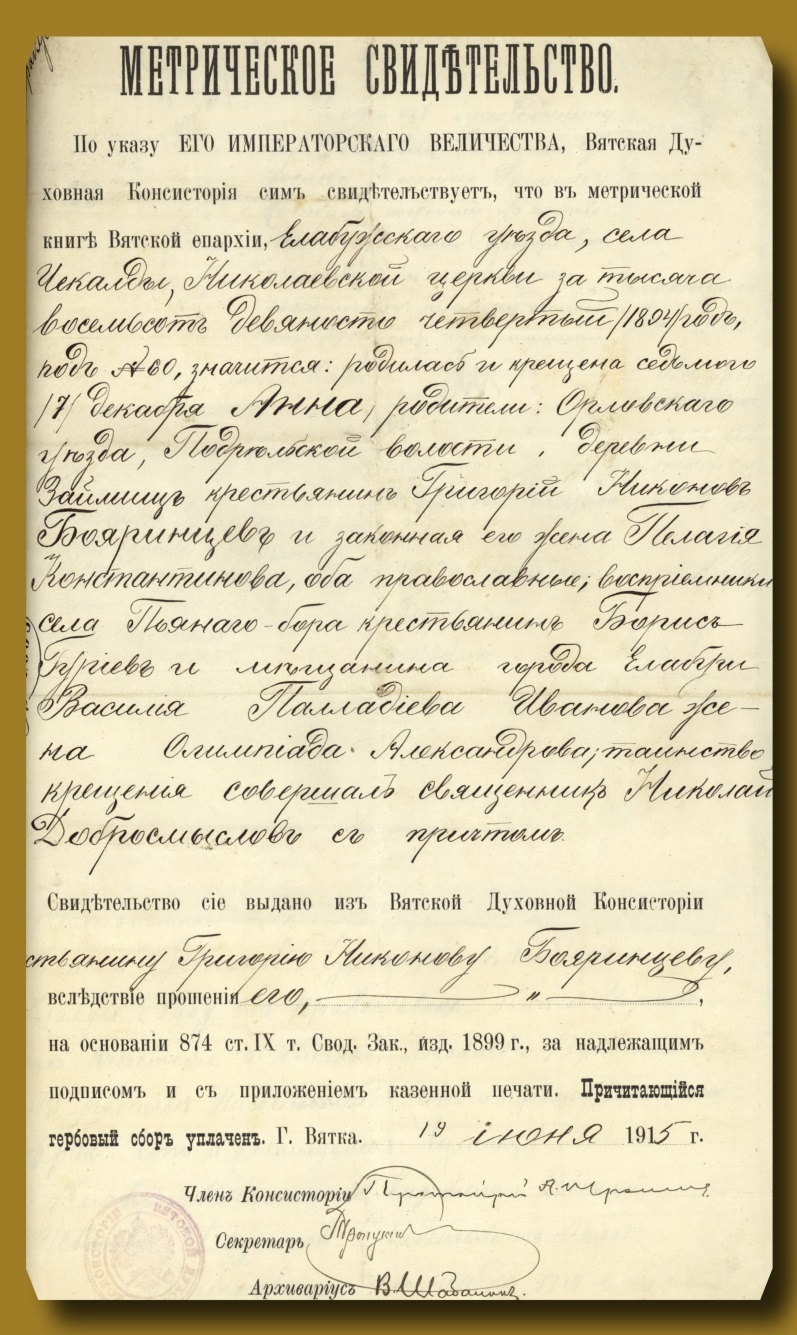 МЕТРИЧЕСКОЕ СВИДѢТЕЛЬСТВО.
По указу ЕГО ИМПЕРАТОРСКАГО ВЕЛИЧЕСТВА, Вятская Ду-
ховная Консисторія симъ свидѣтельствуетъ, что въ метрической
книгѣ Вятской епархіи, Елабужскаго уѣзда, села
Чекалды, Николаевской церкви за тысяча
восемьсотъ девяносто четвертый /1894/ годъ,
подъ № 60, значится: родилась и крещена седьмого
/7/ декабря Анна, родители: Орловскаго
уѣзда, Подрельской волости, деревни
Займищъ крестьянинъ Григорій Никоновъ
Бояринцевъ и законная его жена Пелагія
Константинова, оба православные; воспріемники
села Пьянаго-бора крестьянинъ Борисъ
Гуріевъ и мѣщанина города Елабуги
Василія Палладіева Иванова же-
на Олимпіада Александрова; таинство
крещенія совершалъ священникъ Николай
Добросмысловъ съ причтомъ.
Свидѣтельство сіе выдано изъ Вятской Духовной Консисторіи
стьянину Григорію Никонову Бояринцеву,
вслѣдствіе прошенія его, — " —,
на основаніи 874 ст. IX т. Свод. Зак., изд. 1899 г., за надлежащимъ
подписомъ и съ приложеніемъ казенной печати. Причитающійся
гербовый сборъ уплаченъ. Г. Вятка. 19 іюня 1915 г.
Членъ Консисторіи Протоіерей А.
Секретарь
Архиваріусъ В.